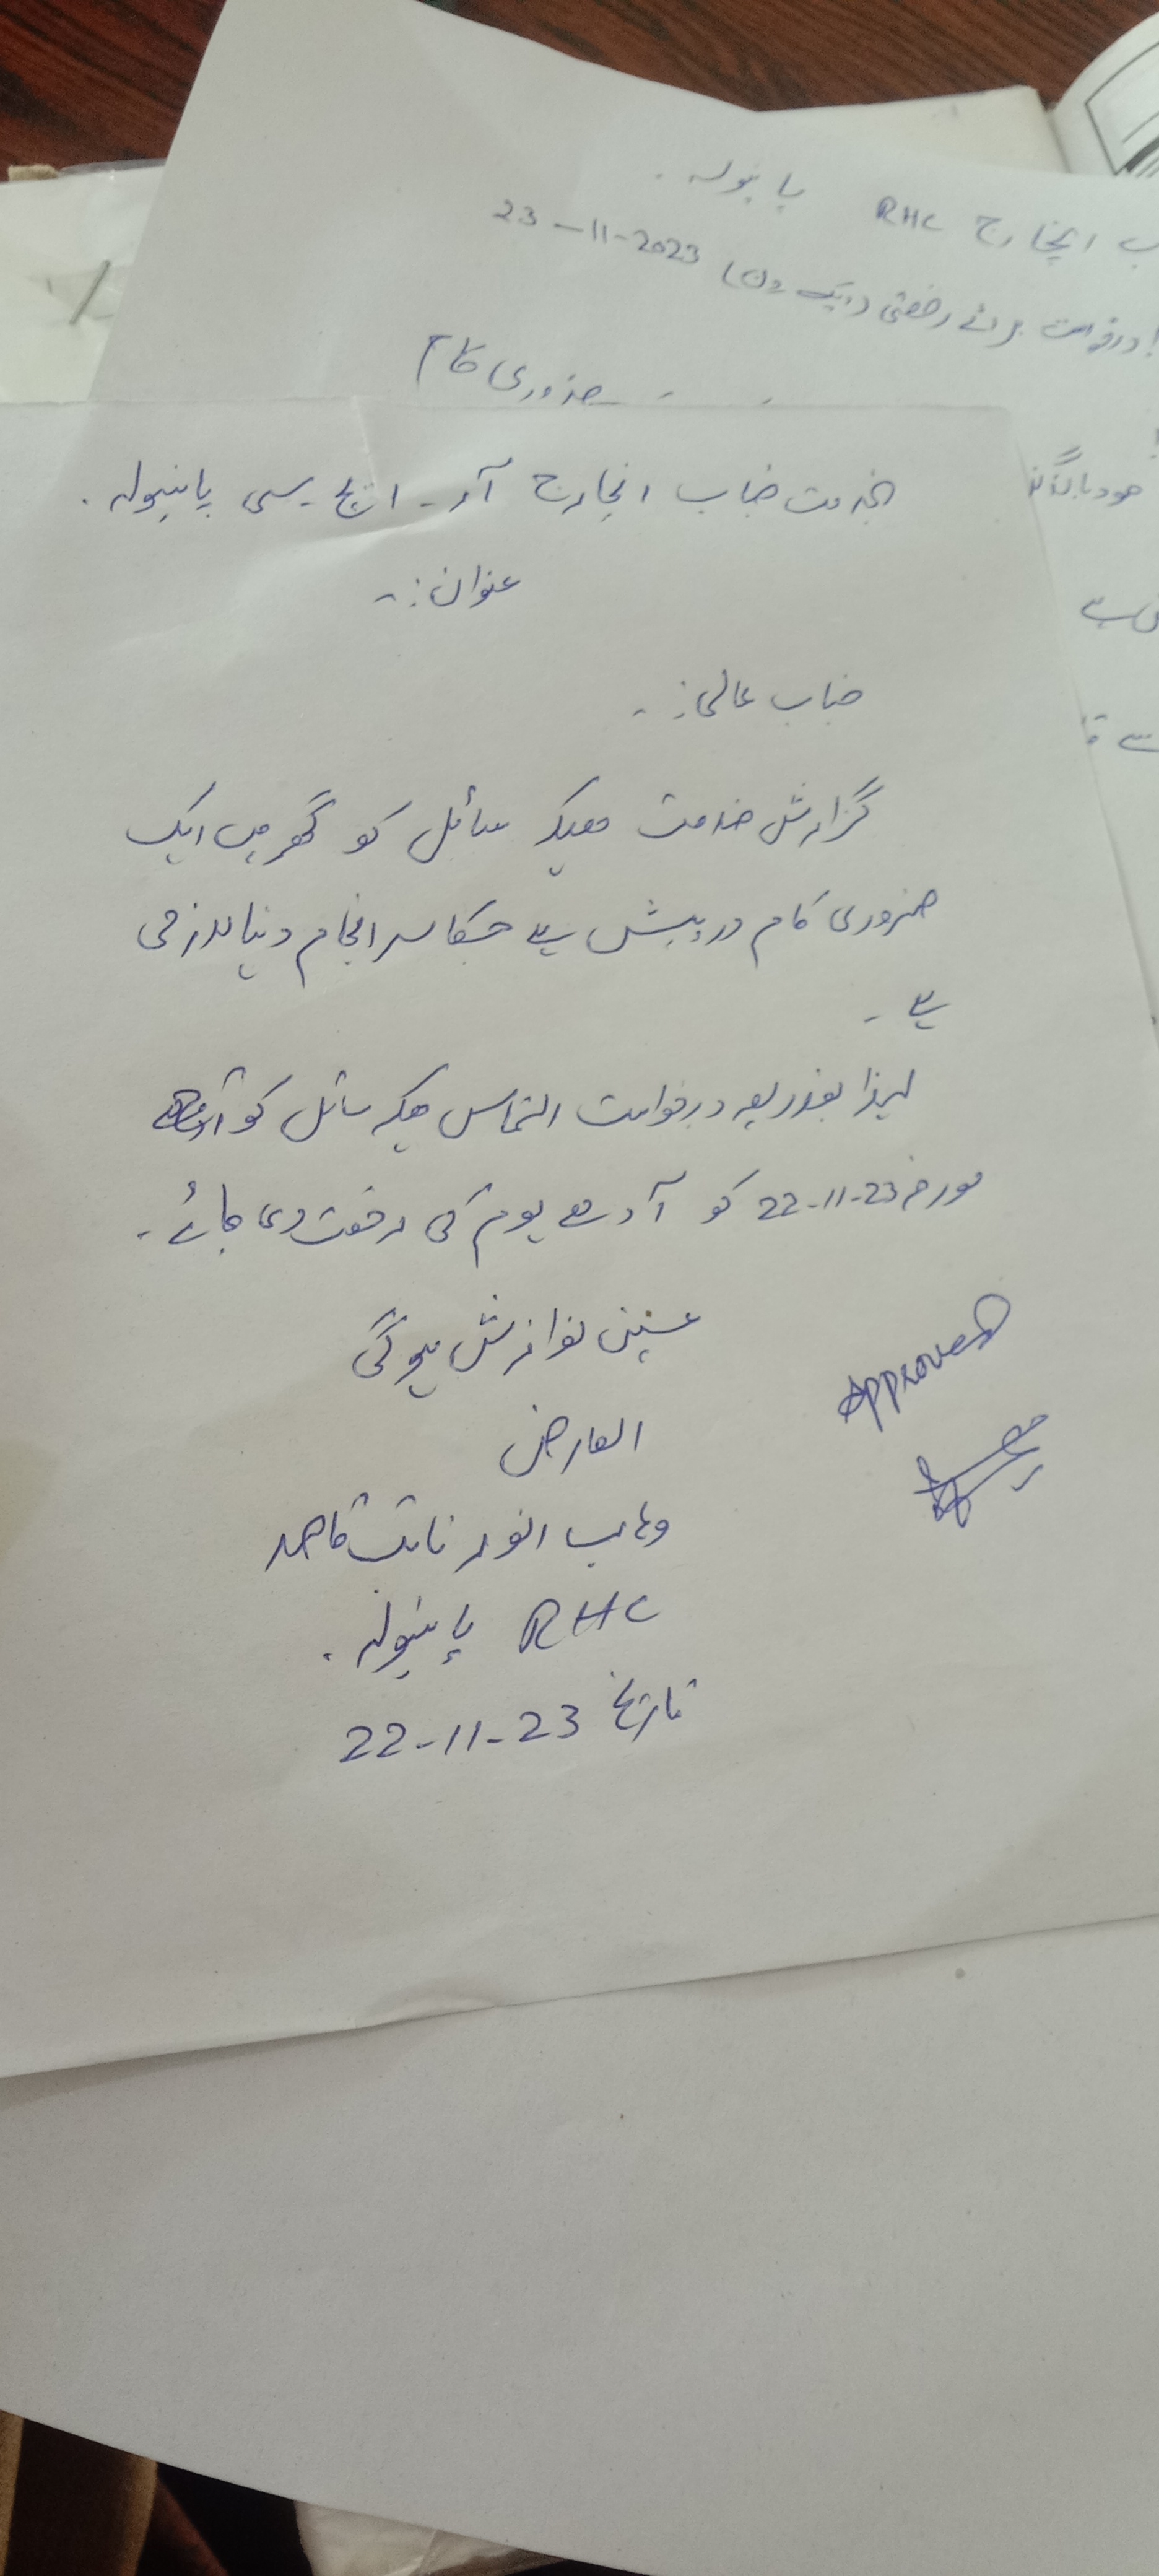 انچارج RHC پانیولہ۔
درخواست برائے رخصتی (ایک دن) 23-11-2023
ضروری کام
بخدمت جناب انچارج آر۔ ایچ۔ سی پانیولہ۔
عنوان:۔
جناب عالی:۔
گزارش خدمت ہیکہ سائل کو گھر میں ایک
ضروری کام درپیش ہے جسکا سر انجام دینا لازمی
ہے۔
لہذا بذریعہ درخواست التماس ہیکہ سائل کو
مورخہ 22-11-23 کو آدھے یوم کی رخصت دی جائے۔
عین نوازش ہوگی
Approved
العارض
وہاب انور نائب قاصد
RHC پانیولہ۔
تاریخ 22-11-23